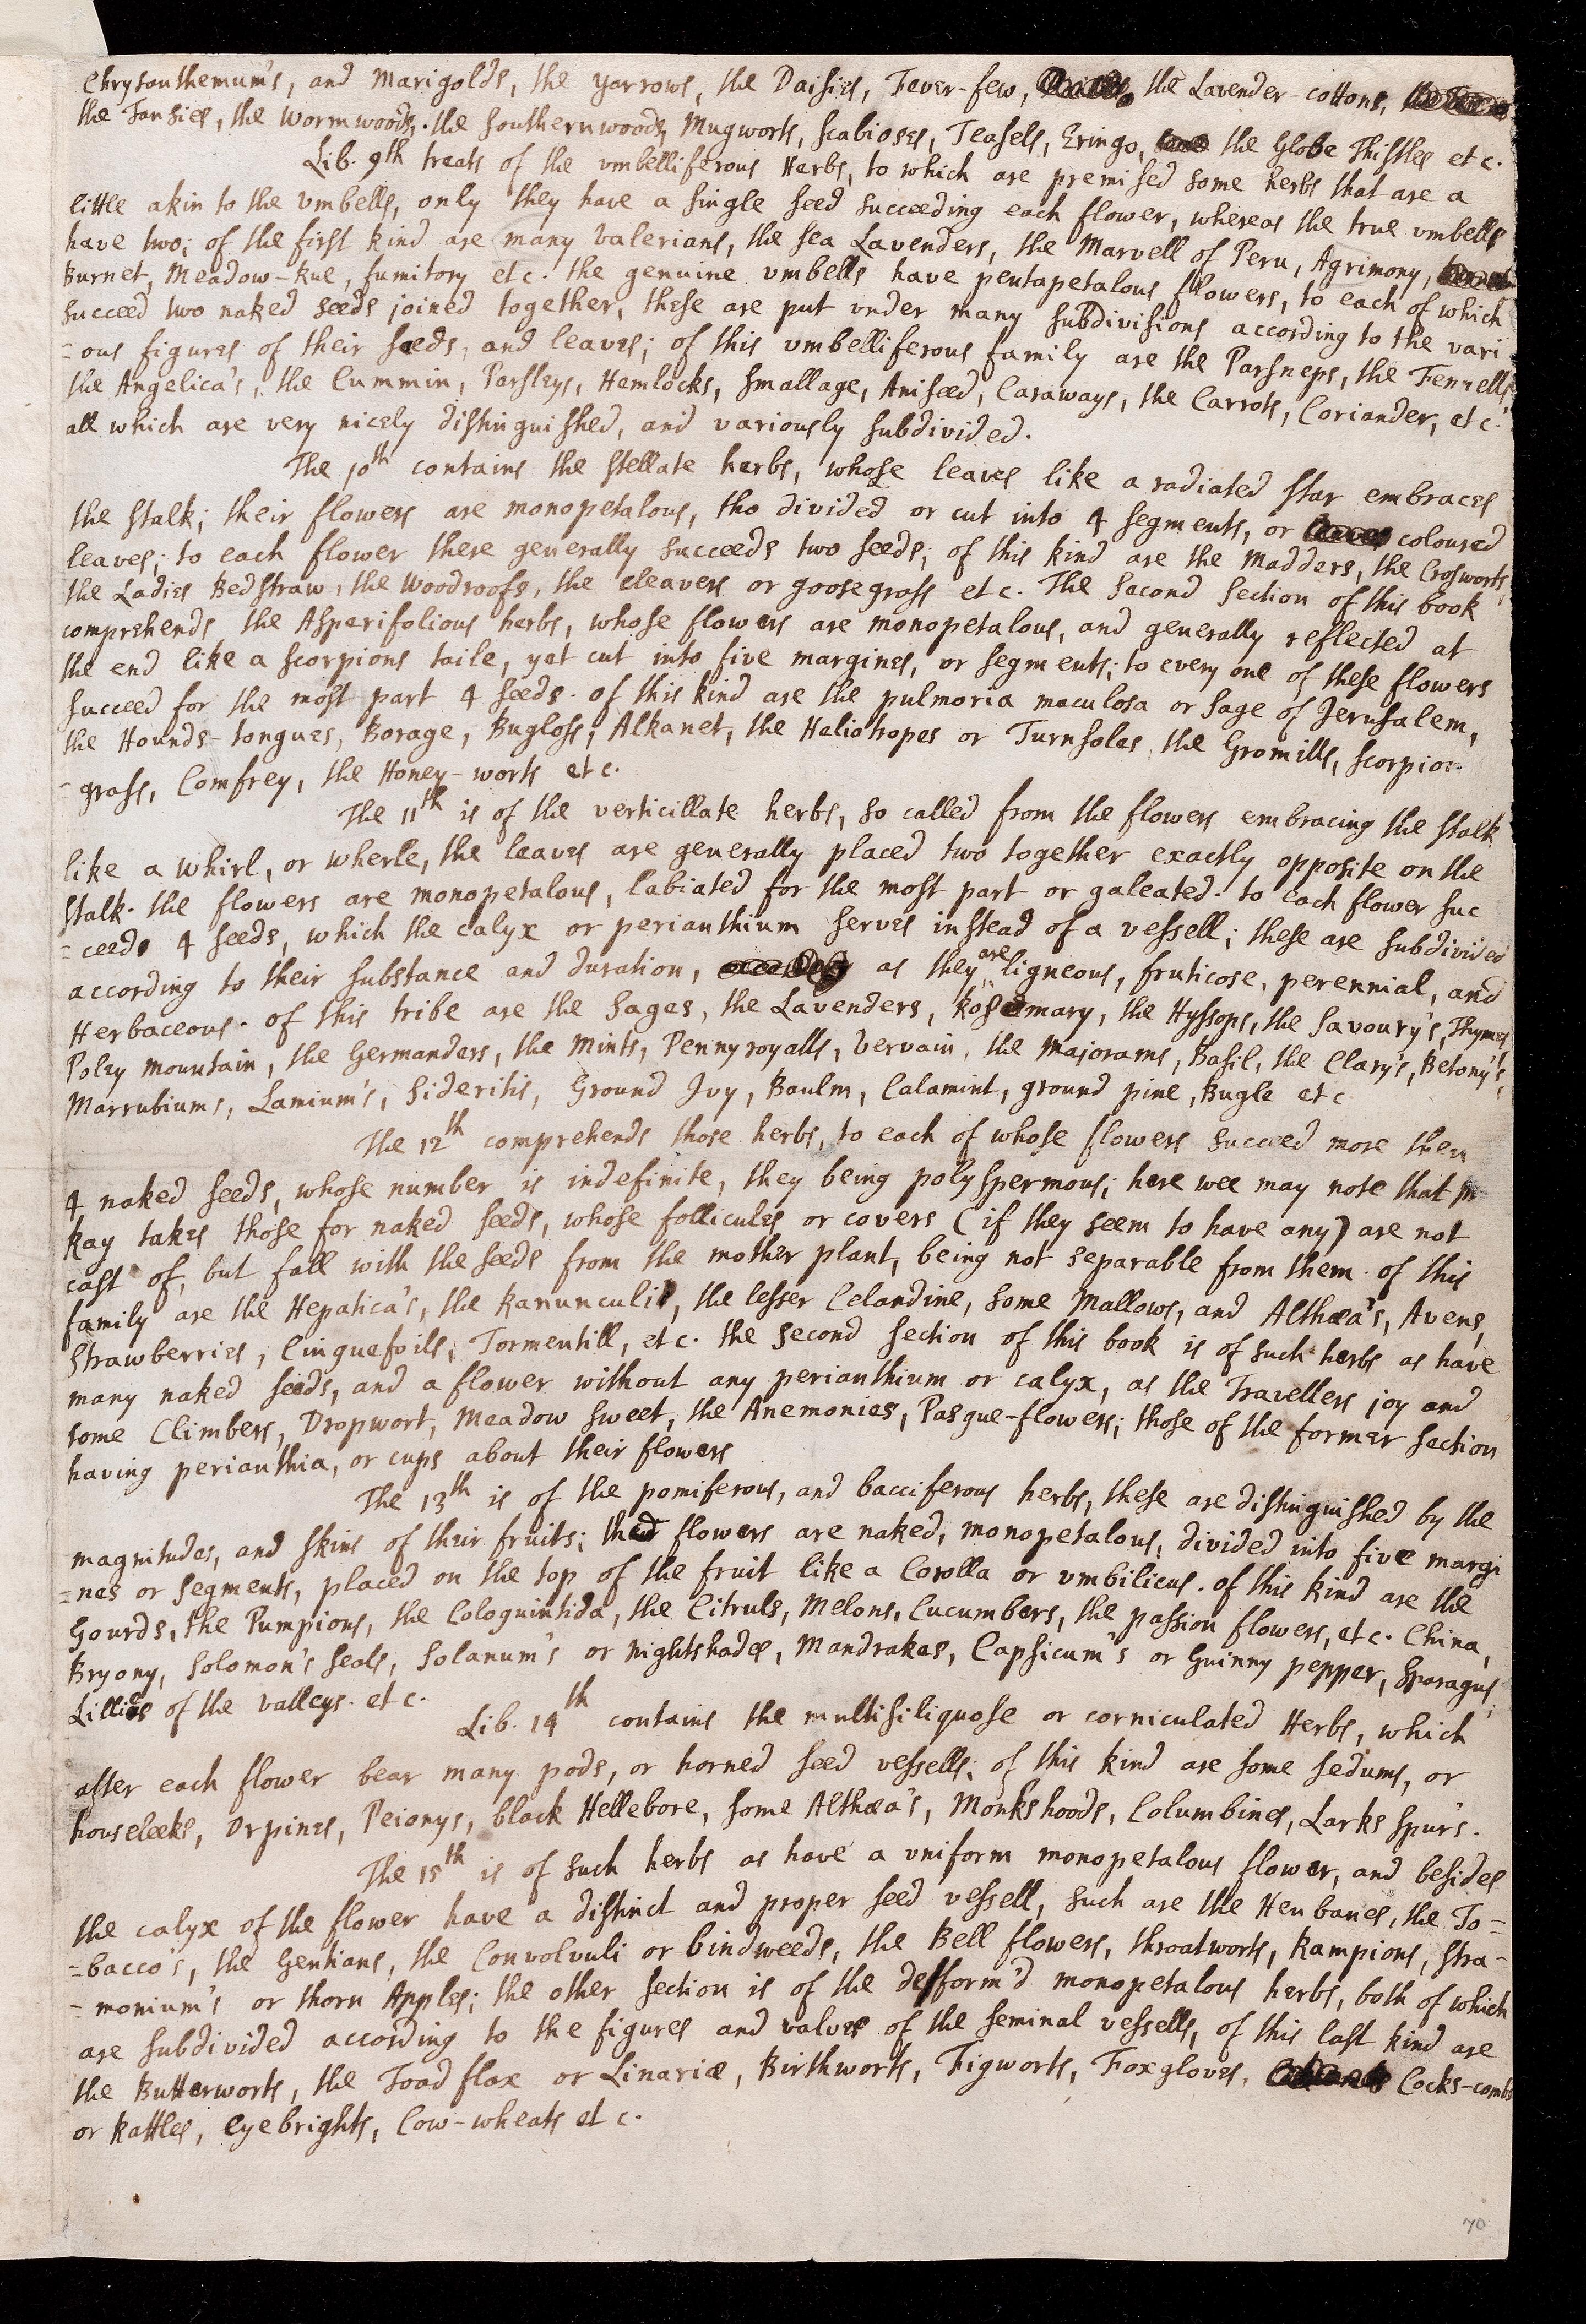 Chrysanthemum's, and Marigolds, the Yarrows, the Daisies, Fever-few, the Lavender-cottons,
the Tansies, the Wormwoods, the Southernwoods, Mugworts, Scabioses, Teasels, Eringo, the Globe Thistles etc.
Lib. 9th treats of the vmbelliferous Herbs, to which are premised some herbs that are a
little akin to the vmbells, only they have a single seed succeeding each flower, whereas the true vmbells
have two; of the first kind are many Valerians, the sea Lavenders, the Marvell of Peru, Agrimony,
Burnet, Meadow-Rue, fumitory etc. the genuine vmbells have pentapetalous flowers, to each of which
succeed two naked seeds joined together, these are put vnder many subdivisions according to the vari
=ous figures of their seeds, and leaves; of this vmbelliferous family are the Parsneps, the Fennells
the Angelica's, the Cummin, Parsleys, Hemlocks, Smallage, Aniseed, Caraways, the Carrots, Coriander, etc.
all which are very nicely distinguished, and variously subdivided.
The 10th contains the stellate herbs, whose leaves like a radiated star embraces
the stalk; their flowers are monopetalous, tho divided or cut into 4 segments, or coloured
leaves; to each flower there generally succeeds two seeds; of this kind are the Madders, the Crosworts,
the Ladies Bedstraw, the Woodroofs, the cleavers or goosegrass etc. The Second Section of this book
comprehends the Asperifolious herbs, whose flowers are monopetalous, and generally reflected at
the end like a scorpions taile, yet cut into five margines, or segments; to every one of these flowers
succeed for the most part 4 seeds. of this kind are the pulmoria maculosa or Sage of Jerusalem,
the Hounds-tongues, Borage, Bugloss, Alkanet, the Heliotropes or Turnsoles, the Gromills, scorpion-
-grass, Comfrey, the Honey-worts etc.
The 11th is of the verticillate herbs, so called from the flowers embracing the stalk
like a whirl, or wherle, the leaves are generally placed two together exactly opposite on the
stalk. the flowers are monopetalous, labiated for the most part or galeated. to each flower suc
=ceed 4 seeds, which the calyx or perianthium serves instead of a vessell; these are subdivided
according to their substance and duration, as they are ligneous, fruticose, perennial, and
Herbaceous. of this tribe are the Sages, the Lavenders, Rosemary, the Hyssops, the Savoury's, Thymes
Poley mountain, the Germanders, the Mints, Pennyroyalls, Vervain, the Majorams, Basil, the Clary's, Betony's,
Marrubiums, Lamium's, Sideritis, Ground Ivy, Baulm, Calamint, ground pine, Bugle etc
The 12th comprehends those herbs, to each of whose flowers succeed more then
4 naked seeds, whose number is indefinite, they being polyspermous; here wee may note that Mr
Ray takes those for naked seeds, whose follicules or covers (if they seem to have any) are not
cast of, but fall with the seeds from the mother plant, being not separable from them. of this
family are the Hepatica's, the Ranunculi, the lesser Celandine, some Mallows, and Althæa's, Avens,
Strawberries, Cinquefoils, Tormentill, etc. the second section of this book is of such herbs as have
many naked seeds, and a flower without any perianthium or calyx, as the Travellers joy and
some Climbers, Dropwort, Meadow sweet, the Anemonies, Pasque-flowers; those of the former section
having perianthia, or cups about their flowers
The 13th is of the pomiferous, and bacciferous herbs, these are distinguished by the
magnitudes, and skins of their fruits; their flowers are naked, monopetalous, divided into five margi
=nes or segments, placed on the top of the fruit like a Corolla or vmbilicus. of this kind are the
Gourds, the Pumpions, the Coloquintida, the Citruls, Melons, Cucumbers, the passion flowers, etc. China,
Bryony, Solomon's seals, Solanum's or nightshades, Mandrakes, Capsicum's or Guinny pepper, Sparagus,
Lillies of the valleys. etc.
Lib. 14th contains the multisiliquose or corniculated Herbs, which
after each flower bear many pods, or horned seed vessells; of this kind are some sedums, or
houseleeks, Orpines, Peionys, black Hellebore, some Althæa's, Monkshoods, Columbines, Larks spurs.
The 15th is of such herbs as have a vniform monopetalous flower, and besides
the calyx of the flower have a distinct and proper seed vessell, such are the Henbanes, the To=
=bacco's, the Gentians, the Convolvuli or bindweeds, the Bell flowers, throatworts, Rampions, Stra-
-monium's or thorn Apples; the other section is of the defform'd monopetalous herbs, both of which
are subdivided according to the figures and valves of the seminal vessells, of this last kind are
the Butterworts, the Toad flax or Linariæ, Birthworts, Figworts, Foxgloves, Cocks-combs
or Rattles, eyebrights, Cow-wheats etc.
70